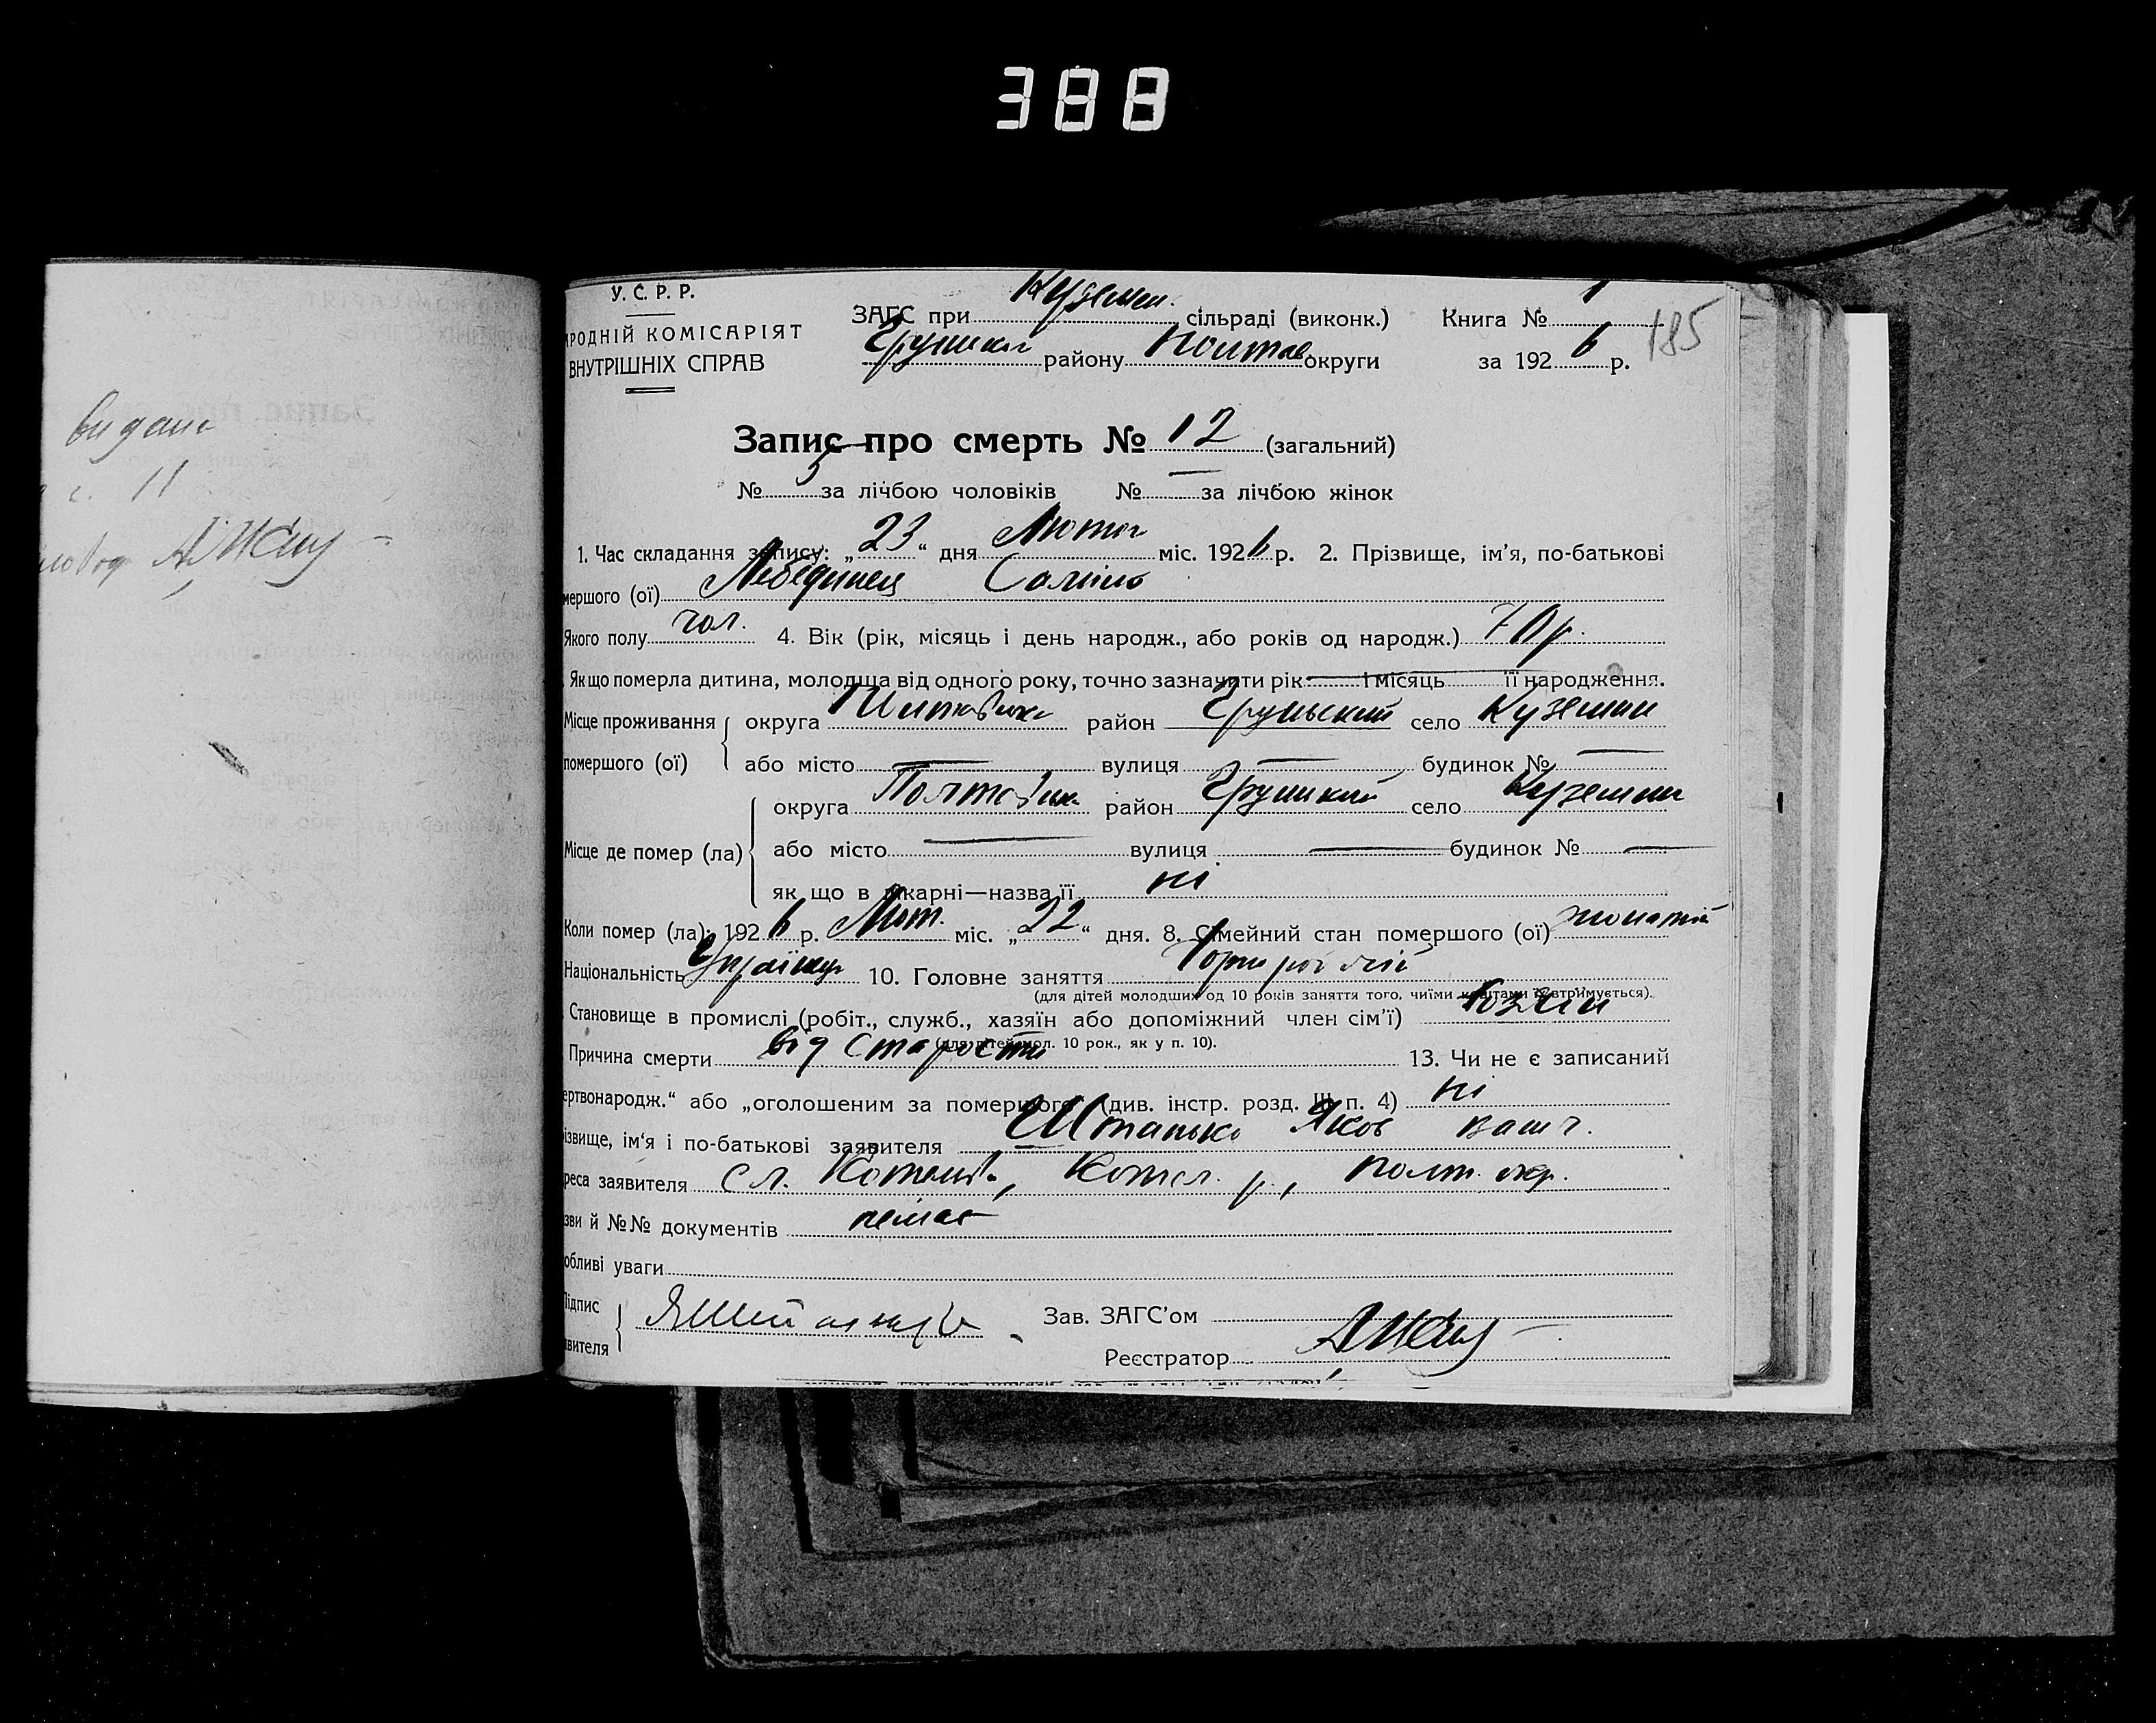 388
У. С. Р. Р.
РОДНІЙ КОМІСАРІЯТ
ВНУТРІШНІХ СПРАВ
ЗАГС при Куземен. сільраді (виконк.) Книга № 1
району Полтав округи за 1926 р. 185
Запис про смерть № 12 (загальний)
№ 5 за лічбою чоловіків № — за лічбою жінок
1. Час складання запису: „23“ дня Лютог міс. 1926 р. 2. Прізвище, ім'я, по-батькові
мершого (ої) Лебединец
Якого полу чол. 4. Вік (рік, місяць і день народж., або років од народж.) 70 р.
Якщо померла дитина, молодща від одного року, точно зазначити рік і місяць її народження.
Місце проживання округа район Груньский село Куземин
помершого (ої) або місто — вулиця — будинок № —
округа Полтавська район село Куземин
Місце де помер (ла) або місто — вулиця — будинок № —
як що в лікарні—назва її ні
Коли помер (ла): 1926 р. Лют. міс. „22“ дня. 8. Сімейний стан помершого (ої) жонатий
Національність Українець 10. Головне заняття
(для дітей молодших од 10 років заняття того, чиїми коштами їх втримується).
Становище в промислі (робіт., служб., хазяїн або допоміжний член сім'ї)
(для дітей мол. 10 рок., як у п. 10).
Причина смерти від Старости 13. Чи не є записаний
ертвонародж.“ або „оголошеним за помершого“ (див. інстр. розд. III п. 4) ні
ізвище, ім'я і по-батькові заявителя Штанько Яков
реса заявителя сл. Котельва, Котел. р., Полт. окр.
зви й №№ документів немає
обливі уваги
Підпис
явителя
Зав. ЗАГС'ом
Реєстратор
видано
11